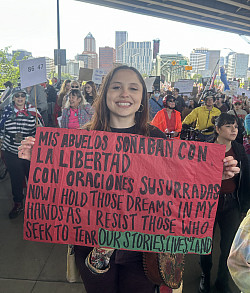 86 47
MIS ABUELOS SONABAN CON
LA LIBERTAD
CON ORACIONES SUSURRADAS
NOW I HOLD THOSE DREAMS IN MY
HANDS AS I RESIST THOSE WHO
SEEK TO TEAR OUR STORIES, LIVES, LAND